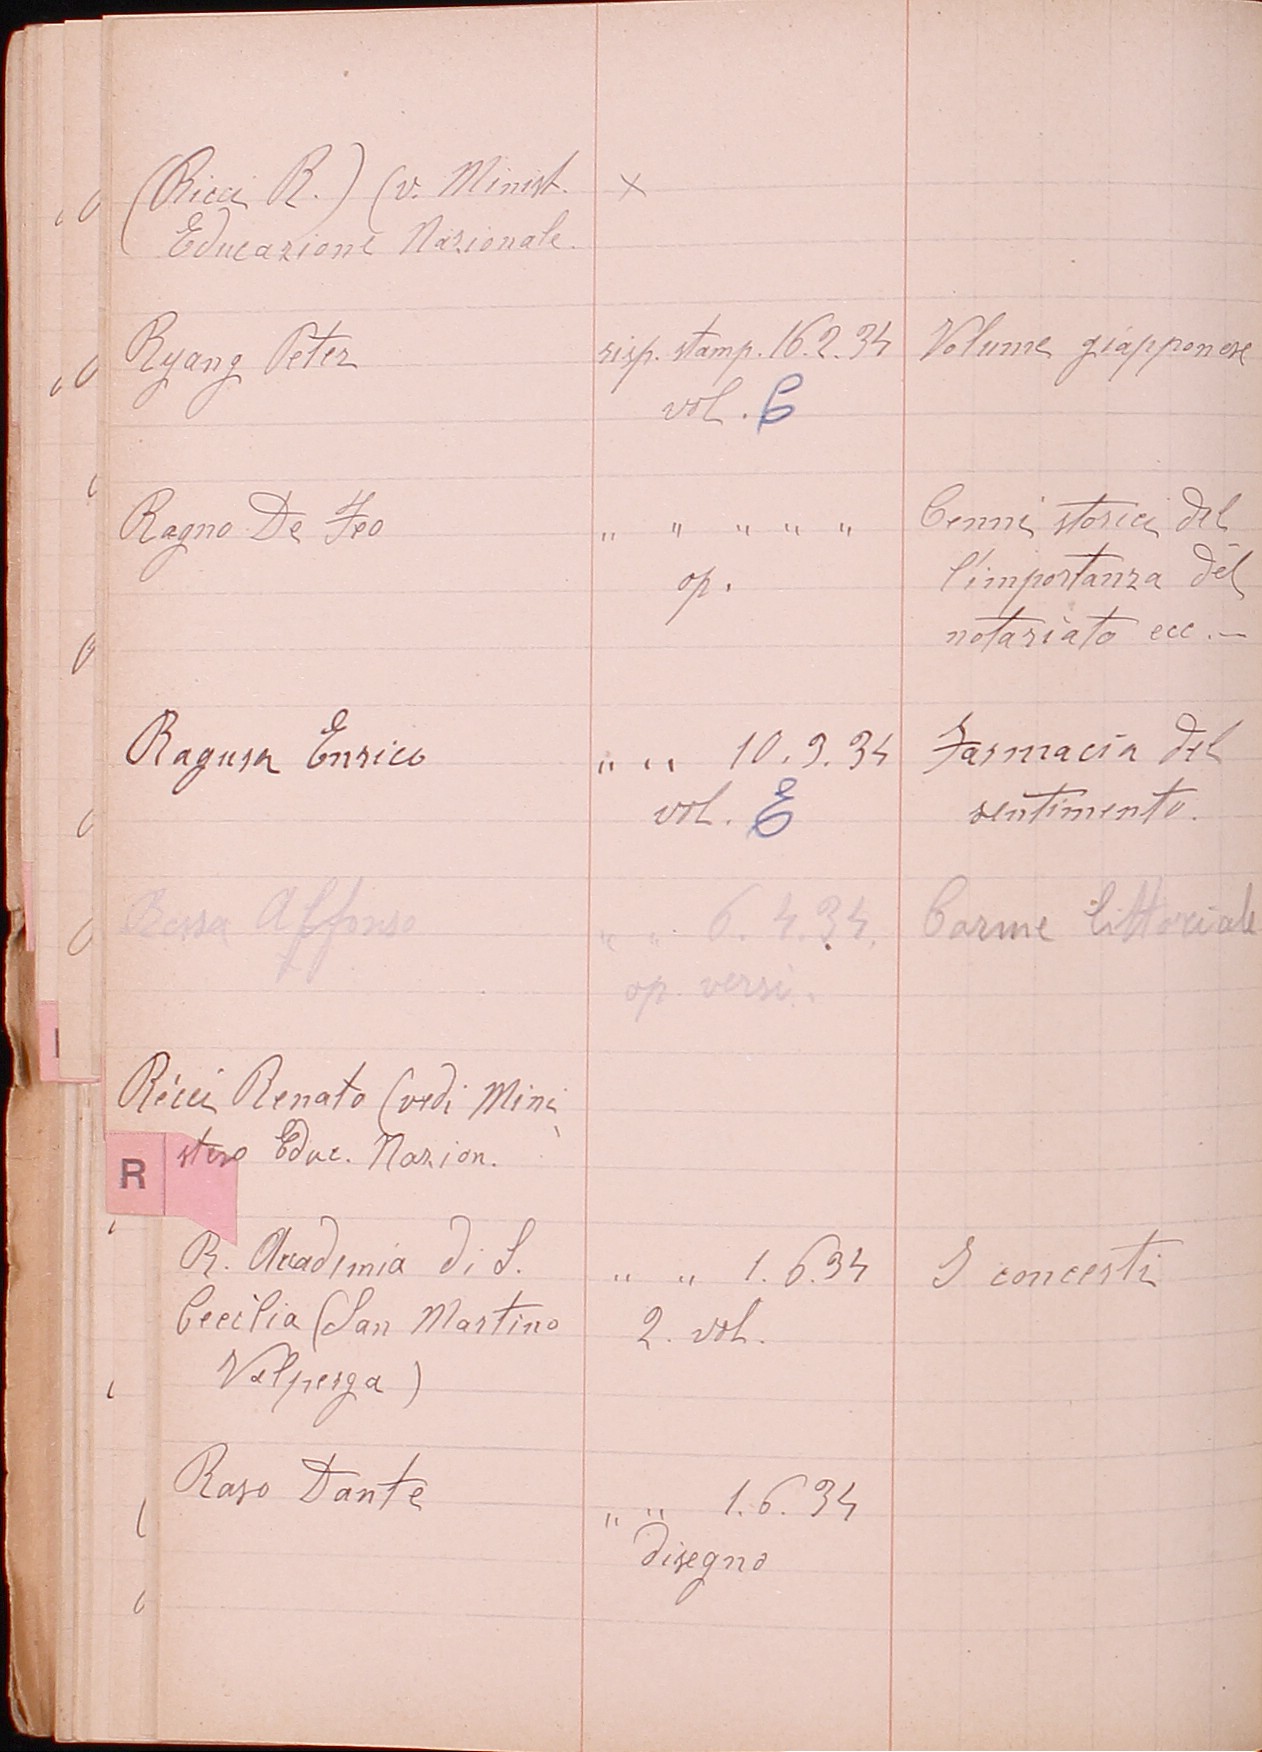 (Ricci R.) (v. Minist. x
Educazione Nazionale.
Ryang Peter risp. stamp. 16.2.34 Volume giapponese
vol.
Ragno De Feo " " " " " Cenni storici del
op. l'importanza del
notariato ecc. —
Ragusa Enrico " " 10.3.34 Farmacia del
vol. E sentimento.
Alfonso " " 6.4.34. Carme littoriale
op. versi.
Ricci Renato (vedi Mini
stero Educ. Nazion.
R
R. Accademia di S. " " 1.6.34 I concerti
Cecilia (San Martino 2. vol.
Valperga)
Raso Dante " " 1.6.34
disegno